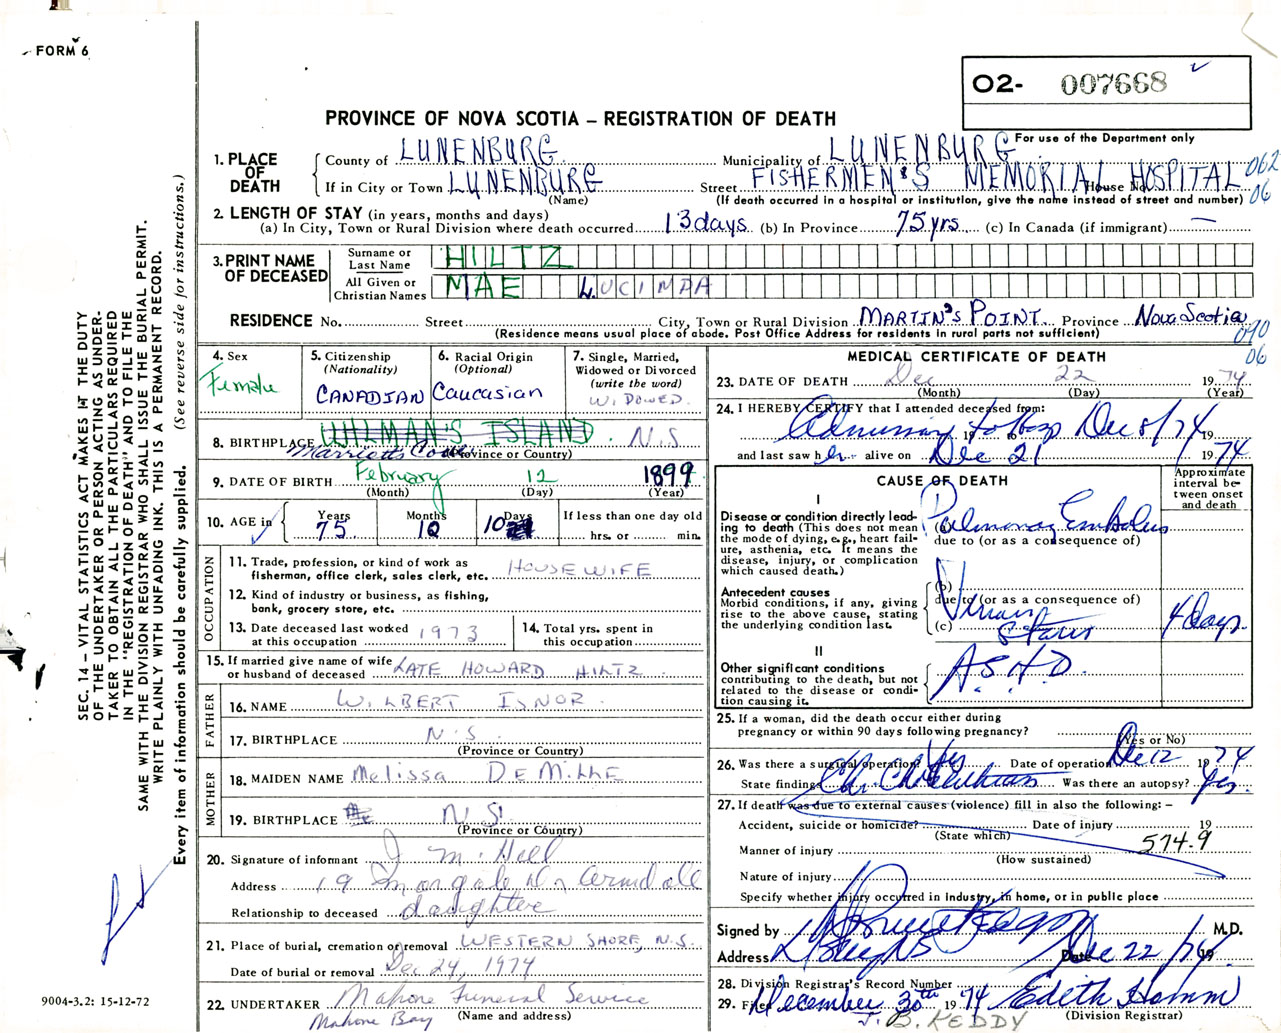 FORM 6
02- 007668
PROVINCE OF NOVA SCOTIA – REGISTRATION OF DEATH
For use of the Department only
1. PLACE OF DEATH
County of LUNENBURG Municipality of LUNENBURG
If in City or Town LUNENBURG Street FISHERMEN'S MEMORIAL HOSPITAL House No. 062
(Name) (If death occurred in a hospital or institution, give the name instead of street and number) 06
2. LENGTH OF STAY (in years, months and days)
(a) In City, Town or Rural Division where death occurred 13 days (b) In Province 75 yrs (c) In Canada (if immigrant) —
3. PRINT NAME OF DECEASED
Surname or Last Name HILTZ
All Given or Christian Names MAE LUCINDA
RESIDENCE No. Street City, Town or Rural Division MARTIN'S POINT Province Nova Scotia
(Residence means usual place of abode. Post Office Address for residents in rural parts not sufficient) 090
06
4. Sex Female
5. Citizenship (Nationality) CANADIAN
6. Racial Origin (Optional) Caucasian
7. Single, Married, Widowed or Divorced (write the word) WIDOWED
8. BIRTHPLACE N.S
Marriotts Cove (Province or Country)
9. DATE OF BIRTH February 12 1899
(Month) (Day) (Year)
10. AGE in Years 75 Months 10 Days 10 If less than one day old hrs. or min.
OCCUPATION
11. Trade, profession, or kind of work as fisherman, office clerk, sales clerk, etc. HOUSEWIFE
12. Kind of industry or business, as fishing, bank, grocery store, etc.
13. Date deceased last worked at this occupation 1973
14. Total yrs. spent in this occupation
15. If married give name of wife or husband of deceased LATE HOWARD HILTZ
FATHER
16. NAME WILBERT ISNOR
17. BIRTHPLACE N.S.
(Province or Country)
MOTHER
18. MAIDEN NAME Melissa DEMILLE
19. BIRTHPLACE N.S.
(Province or Country)
20. Signature of informant
Address 19
Relationship to deceased daughter
21. Place of burial, cremation or removal WESTERN SHORE, N.S.
Date of burial or removal Dec 24, 1974
22. UNDERTAKER Mahone Funeral Service
Mahone Bay (Name and address)
MEDICAL CERTIFICATE OF DEATH
23. DATE OF DEATH Dec 22 1974
(Month) (Day) (Year)
24. I HEREBY CERTIFY that I attended deceased from:
Dec 8/74 19
and last saw her alive on Dec 21 1974
CAUSE OF DEATH
Approximate interval between onset and death
I
Disease or condition directly leading to death (This does not mean the mode of dying, e.g., heart failure, asthenia, etc. It means the disease, injury, or complication which caused death.)
(a) Pulmonary Embolus
due to (or as a consequence of)
Antecedent causes
Morbid conditions, if any, giving rise to the above cause, stating the underlying condition last.
(b)
due to (or as a consequence of)
(c) Venous Stasis 4 days.
II
Other significant conditions contributing to the death, but not related to the disease or condition causing it.
A.S.H.D.
25. If a woman, did the death occur either during pregnancy or within 90 days following pregnancy?
(Yes or No)
26. Was there a surgical operation? Yes Date of operation Dec 12 1974
State findings Was there an autopsy? Yes.
27. If death was due to external causes (violence) fill in also the following: –
Accident, suicide or homicide? Date of injury 19
(State which)
Manner of injury 574.9
(How sustained)
Nature of injury
Specify whether injury occurred in Industry, in home, or in public place
Signed by M.D.
Address Date Dec 22/74 19
28. Division Registrar's Record Number
29. Filed December 30th 1974 Edith Hamm
J. B. KEDDY (Division Registrar)
SEC. 14–VITAL STATISTICS ACT MAKES IT THE DUTY
OF THE UNDERTAKER OR PERSON ACTING AS UNDER-
TAKER TO OBTAIN ALL THE PARTICULARS REQUIRED
IN THE "REGISTRATION OF DEATH" AND TO FILE THE
SAME WITH THE DIVISION REGISTRAR WHO SHALL ISSUE THE BURIAL PERMIT.
WRITE PLAINLY WITH UNFADING INK. THIS IS A PERMANENT RECORD.
Every item of information should be carefully supplied. (See reverse side for instructions.)
9004-3.2: 15-12-72